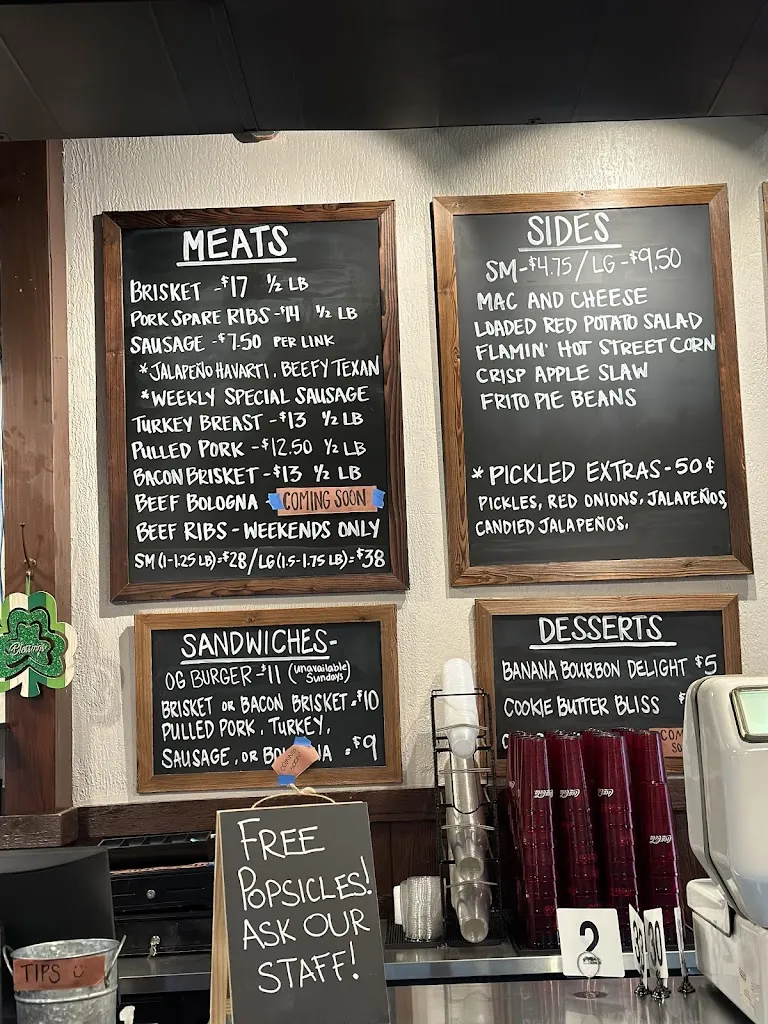 MEATS
BRISKET -$17 ½ LB
PORK SPARE RIBS -$14 ½ LB
SAUSAGE -$7.50 PER LINK
*JALAPEÑO HAVARTI, BEEFY TEXAN
*WEEKLY SPECIAL SAUSAGE
TURKEY BREAST -$13 ½ LB
PULLED PORK -$12.50 ½ LB
BACON BRISKET -$13 ½ LB
BEEF BOLOGNA - COMING SOON
BEEF RIBS - WEEKENDS ONLY
SM (1-1.25 LB)=$28/LG (1.5-1.75 LB)=$38
SIDES
SM-$4.75/LG-$9.50
MAC AND CHEESE
LOADED RED POTATO SALAD
FLAMIN' HOT STREET CORN
CRISP APPLE SLAW
FRITO PIE BEANS
*PICKLED EXTRAS-50¢
PICKLES, RED ONIONS, JALAPEÑOS,
CANDIED JALAPEÑOS.
SANDWICHES-
OG BURGER-$11 (unavailable Sundays)
BRISKET OR BACON BRISKET=$10
PULLED PORK, TURKEY,
SAUSAGE, OR BO IA =$9
COMING SOON
DESSERTS
BANANA BOURBON DELIGHT $5
COOKIE BUTTER BLISS $
COM
SO
Blessings
FREE
POPSICLES!
ASK OUR
STAFF!
TIPS
Coca-Cola
Coca-Cola
Coca-Cola
Coca-Cola
2